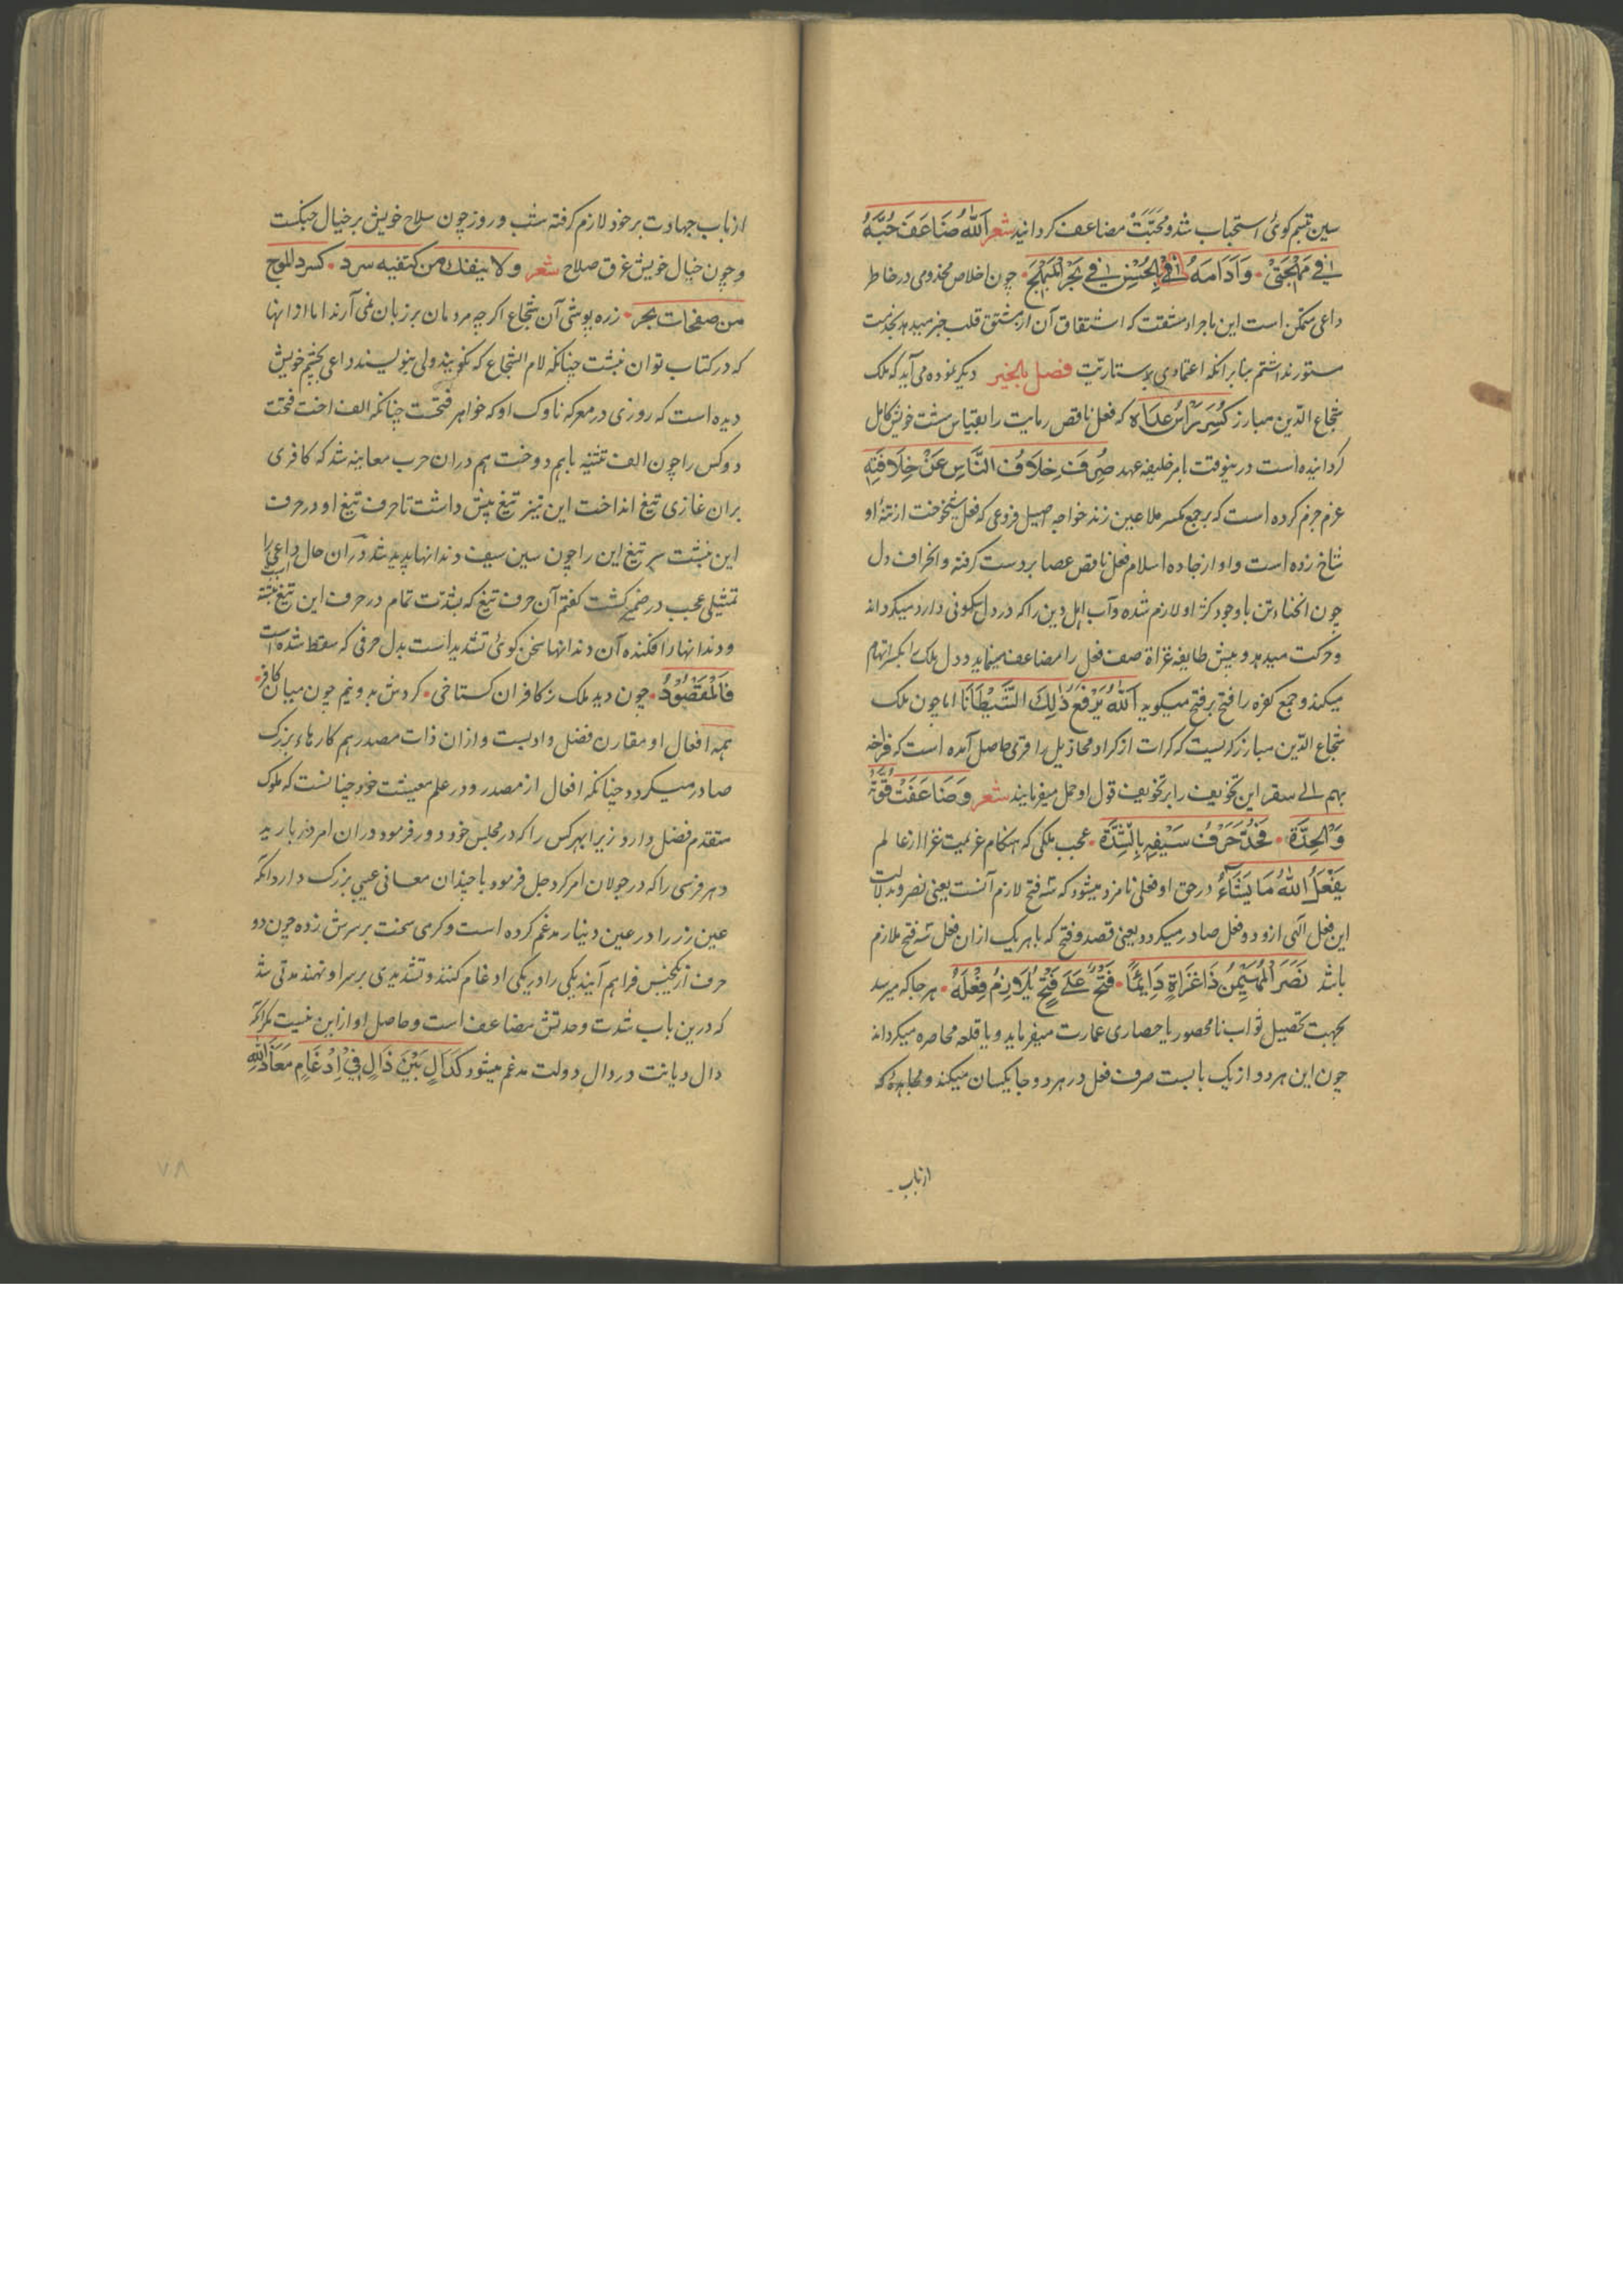 سین تبسم کوئی استحباب شد و محبت مضاعف کردانید شعر اَللّٰهُ ضَاعَفَ حُبَّهُ
فی مُهْجَتِیْ • وَاَدَامَهُ بِالْحُسْنِ فی بَحْرِ الْمُهَجِ • چون اخلاص مخدومی در خاطر
داعی متمکن است این ماجرا که اشتقاق آن از مشتق قلب خبر میدهد بخدمت
ستور نداشتم بنابر آنکه اعتمادی بوستاریت فصل بالخیر دیگر نموده می آید که ملک
شجاع الدین مبارز کُسِرَ رَأْسُ عِدَاهُ که فعل ناقص رمایت را بقیاس مشت خویش کامل
کردانیده است درینوقت بامر خلیفه عهد صُرِفَ خِلَافُ النَّاسِ عَنْ خِلَافَتِهِ
عزم جزم کرده است که بر جمع مکسر ملاعین زند خواجه اصیل فروعی که فعل شیخوخت از تنهٔ او
شاخ زده است و او از جاده اسلام فعل ناقص عصا بر دست کرفته و انحراف دل
چون انحناء تن با وجود کژ او لازم شده و آب اهل دین را که در دل سکونی دارد میکرداند
و حرکت میدهد و پیش طایفه غزاة صف فعل را مضاعف مینماید و دل ملک را بکسر اتهام
میکند و جمع کفره را فتح بر فتح میکوید اَللّٰهُ یَرْفَعُ ذٰلِكَ الشَّیْطَانَا اما چون ملک
شجاع الدین مبارز کریست که کرات از کراد محاذیل را قربی حاصل آمده است که فراخه
بهم الی سقر این تخویف را بر تخویف قول او حمل میفرمایند شعر وَضَاعَفَتْ قُوَّةُ
وَالْحِدَّةُ • فَحُدَّ حَرْفُ سَیْفِهِ بِالشِّدَّةِ • عجب ملکی که هنکام عزیمت غزا از عالم
یَفْعَلُ اللّٰهُ مَا یَشَآءُ در حق او فعلی نامزد میشود که سه فتح لازم آنست یعنی نصر و بدلالت
این فعل الهی ازو دو فعل صادر میکردد یعنی قصد و فتح که با هر یک ازان فعل سه فتح ملازم
باشد نَصَرَ الْمُهَیْمِنُ ذَا غَزَاةٍ دَائِمًا • فَتْحٌ عَلٰی فَتْحٍ یُلَازِمُ فِعْلَهُ • هر جا که میرسد
بجهت تحصیل ثواب نامحصور یا حصاری عمارت میفرماید و یا قلعه محاصره میکرداند
چون این هر دو از یک بابست صرف فعل در هر دو جا یکسان میکند و مجاهدهٔ که
از باب
از باب جهادت بر خود لازم کرفته شب و روز چون سلاح خویش بر خیال جنکست
و چون خیال خویش غرق صلاح شعر ولا ینفك من کتفیه سرد • کسرد للوج
من صفحات بحر • زره پوشی آن شجاع اکرچه مردمان بر زبان نمی آرند اما ادا بها
که در کتاب توان نبشت چنانکه لام الشجاع که نکویند ولی بنویسند داعی بچشم خویش
دیده است که روزی در معرکه ناوک او که خواهر فتحست چنانکه الف اخت فتحت
دو کس را چون الف تثنیه باهم دوخت هم دران حرب معاینه شد که کافری
بران غازی تیغ انداخت این نیز تیغ پیش داشت تا حرف تیغ او در حرف
این نشست سر تیغ این را چون سین سیف دندانها پدید شد دران حال داعی را
تمثیلی عجب در ضمیر کشت کفتم آن حرف تیغ که بشدت تمام در حرف این تیغ نشسته
و دندانها را افکنده آن دندانها سخن کوئی تشدید است بدل حرفی که سقط شده است
فَالْمَقْصُوْدُ • چون دید ملک ز کافران کستاخی • کردش بدو نیم چون میان کافر •
همه افعال او مقارن فضل و ادبست و ازان ذات مصدر هم کارهاء بزرک
صادر میکردد چنانکه افعال از مصدر و در علم معیشت خود چنانست که ملوک
متقدم فضل دارد زیرا هر کس را که در مجلس خود دور فرمود دران امر در بارید
و هر فرسی را که در جولان امر کرد جل فرمود با چندان معانی عیبی بزرک دارد آنکه
عین زر را در عین دینار مدغم کرده است و کرمی سخت بر سرش زده چون دو
حرف از یکجنس فراهم آیند یکی را در یکی ادغام کنند و تشدیدی بر سر او نهند مدتی شد
که درین باب شدت و حدتش مضاعف است و حاصل او ازین نیست مکر آنکه
دال دیانت در دال دولت مدغم میشود کَدَالٍ بَیْنَ ذَالٍ فِیْ اِدْغَامٍ مَعَاذَ اللّٰهِ
۷۸